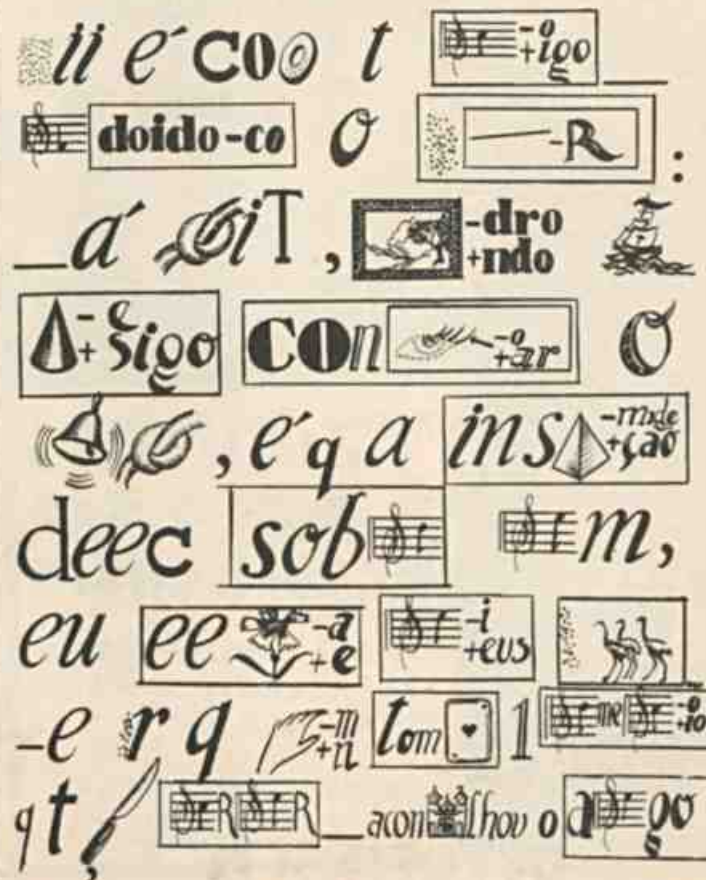 ii é coo t -o +igo
doido -co o -R :
a' iT , -dro +ndo
-e +sigo con -o +ar o
, é q a ins -mide +ção
deec sob m,
eu ee -a +e -i +eus
-e r q -m +n tom 1 me -o +io
q t , R R aconlhou o a go